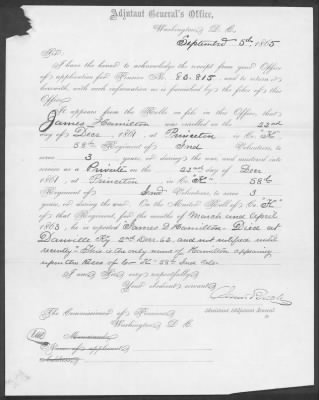 Adjutant General's Office,
Washington D. C.
September 5th, 1865
Sir:
I have the honor to acknowledge the receipt from your Office
of application for Pension No. 80.815, and to return it
herewith, with such information as is furnished by the files of this
Office.
It appears from the Rolls on file in this Office, that
James Hamilton was enrolled on the 22nd
day of Decr, 1861, at Princeton in Co. "K"
58th Regiment of Ind Volunteers, to
serve 3 years, or during the war, and mustered into
service as a Private on the 22nd day of Decr
1861, at Princeton in Co. "K" 58th
Regiment of Ind Volunteers, to serve 3
years, or during the war. On the Muster Roll of Co. "K"
of that Regiment, for the months of March and April
1863, he is reported James D. Hamilton Died at
Danville Ky 2nd Decr. 62. and not notified until
recently. This is the only name of Hamilton appearing
upon the Rolls of Co "K" 58th Ind Vols.
I am Sir, very respectfully,
Your obedient servant,
Assistant Adjutant General
The Commissioner of Pensions
Washington D. C.
Memoranda
Name of applicant
Address